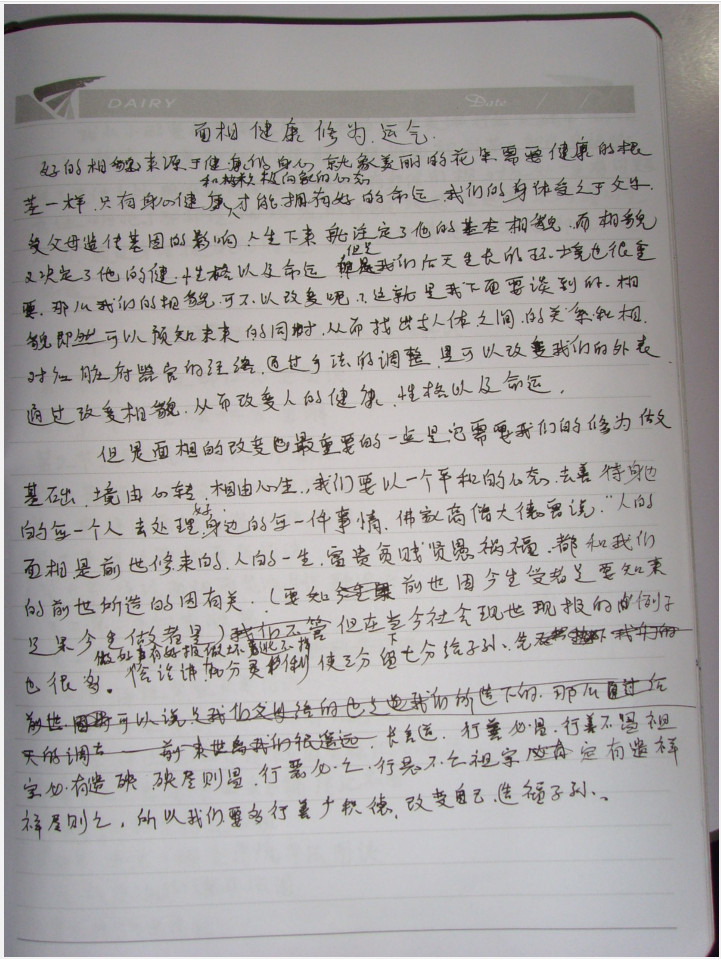 DAIRY
Date
面相健康修为运气.
好的相貌来源于健康的身心 就象美丽的花朵需要健康的根
和积极向上的心态
茎一样.只有身心健康,才能拥有好的命运.我们的身体受之于父母.
受父母遗传基因的影响 人生下来就注定了他的基本相貌.而相貌
又决定了他的健.性格以及命运 但是我们后天生长的环境也很重
要.那么我们的相貌可不以改变呢.这就是我下面要谈到的.相
貌即然可以预知未来的同时.从而找出与人体之间的关系和相.
对应脏府器官的经络.通过手法的调整.是可以改变我们的外表.
通过改变相貌.从而改变人的健康.性格以及命运.
但是面相的改变最重要的一点是它需要我们的修为做
基础.境由心转.相由心生.我们要以一个平和的心态.去善待身边
的每一个人 去处理好身边的每一件事情.佛教高僧大德曾说:"人的
面相是前世修来的.人的一生.富贵贫贱贤愚祸福.都和我们
的前世所造的因有关.(要知前世因今生受者是要知来
世果今生做者是) 但在当今社会现世现报的例子
也很多。俗话讲 分 使三分留下七分给子孙.
可以说是我们父母给的也是我们所造下的.那么通过后
天的调 前 世 我们很遥远. 行善必昌.行善不昌祖
宗必有造殃 殃尽则昌.行恶必亡.行恶不亡祖宗 定有造祥
祥尽则亡.所以我们要多行善少积德.改变自己.造福子孙..